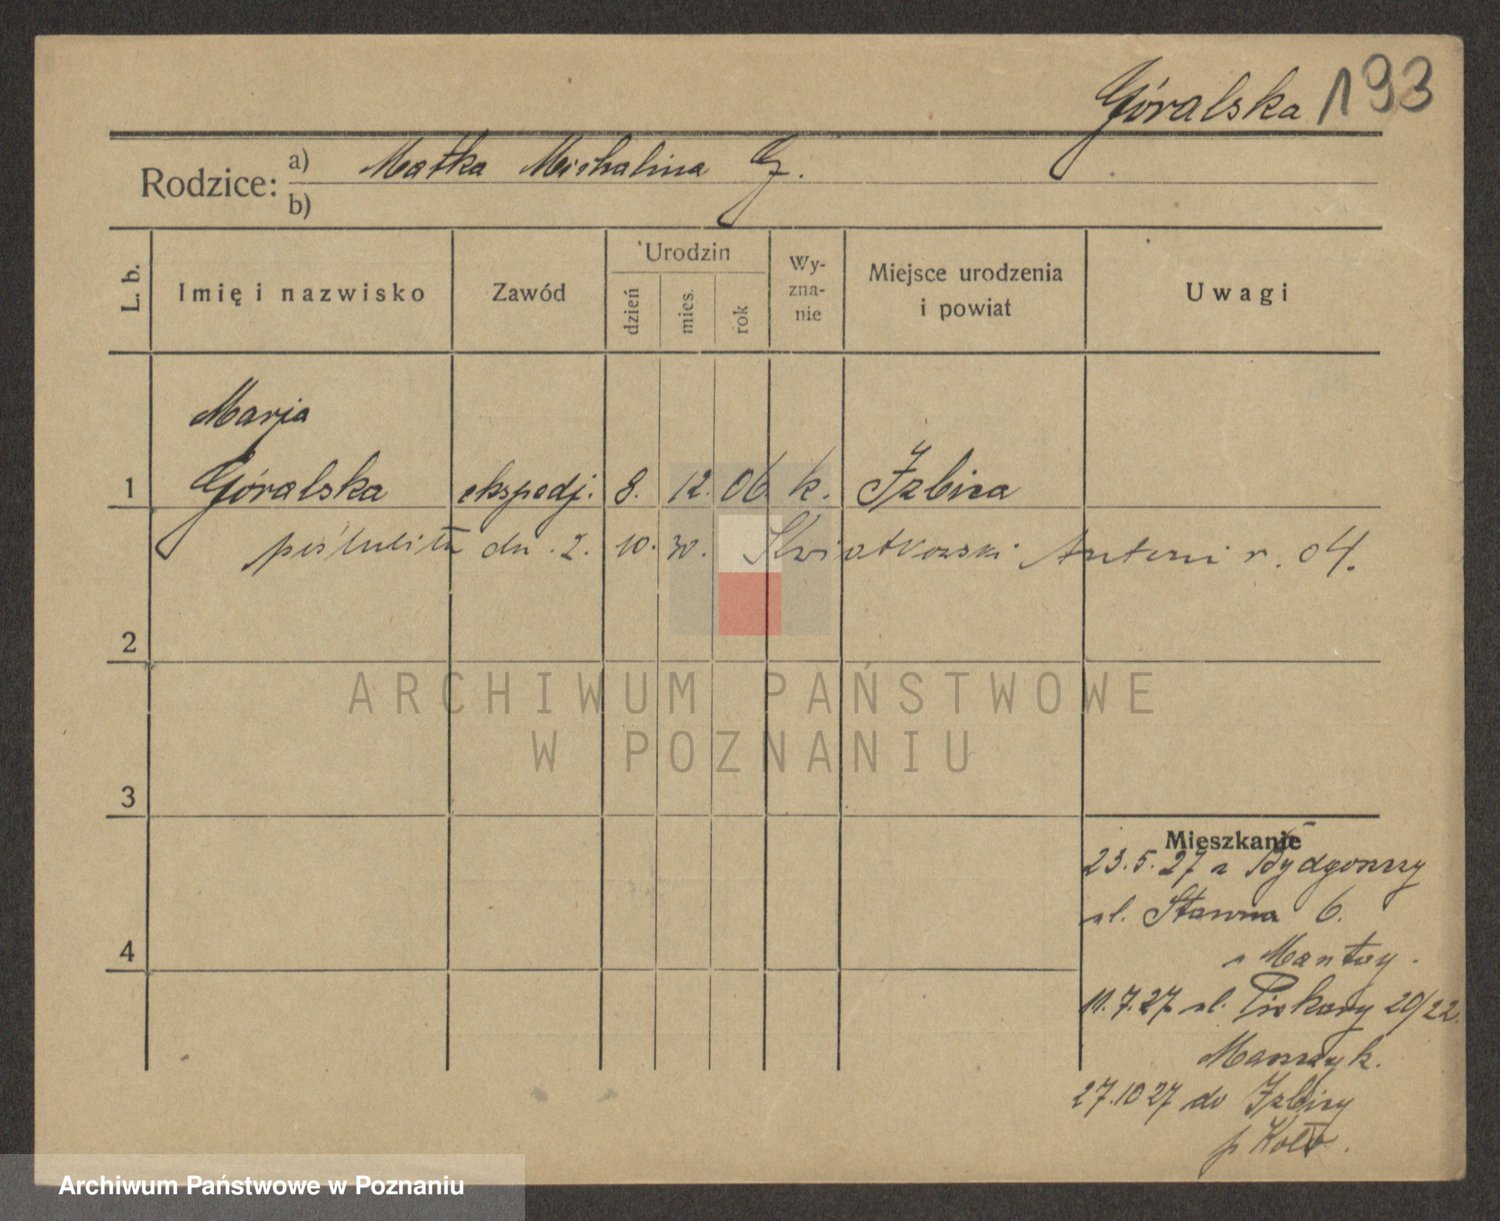 Góralska 193
Rodzice: a) Matka Michalina G.
b)
L. b. Imię i nazwisko Zawód Urodzin dzień mies. rok Wy-zna-nie Miejsce urodzenia i powiat Uwagi
Marja
1 Góralska ekspedj. 8. 12. 06 k. Izbica
poślubiła dn. 2. 10. 30. Kwiatkowski Antoni r. 04.
2
ARCHIWUM PAŃSTWOWE
W POZNANIU
3
Mieszkanie
23.5.27 z Bydgoszczy
ul. Stawna 6.
10.7.27 ul. Piekary 20/22.
4
27.10 27 do Izbicy
p Koło.
Archiwum Państwowe w Poznaniu